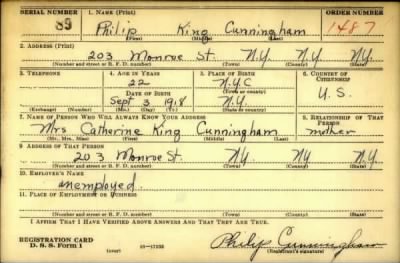 SERIAL NUMBER 1. NAME (Print) ORDER NUMBER
89 Philip King Cunningham 1487
(First) (Middle) (Last)
2. ADDRESS (Print)
203 Monroe St. N.Y. N.Y. N.Y.
(Number and street or R. F. D. number) (Town) (County) (State)
3. TELEPHONE 4. AGE IN YEARS 5. PLACE OF BIRTH 6. COUNTRY OF CITIZENSHIP
22 N.Y.C
DATE OF BIRTH (Town or county)
Sept 3 1918 N.Y. U.S.
(Exchange) (Number) (Mo.) (Day) (Yr.) (State or country)
7. NAME OF PERSON WHO WILL ALWAYS KNOW YOUR ADDRESS 8. RELATIONSHIP OF THAT PERSON
Mrs Catherine King Cunningham mother
(Mr., Mrs., Miss) (First) (Middle) (Last)
9. ADDRESS OF THAT PERSON
203 Monroe St. N.Y. N.Y. N.Y.
(Number and street or R. F. D. number) (Town) (County) (State)
10. EMPLOYER'S NAME
unemployed.
11. PLACE OF EMPLOYMENT OR BUSINESS
(Number and street or R. F. D. number) (Town) (County) (State)
I AFFIRM THAT I HAVE VERIFIED ABOVE ANSWERS AND THAT THEY ARE TRUE.
REGISTRATION CARD
D. S. S. Form 1 (over) 16—17105 Philip Cunningham
(Registrant's signature)